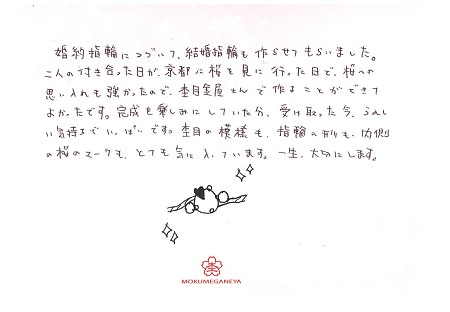 婚約指輪につづいて、結婚指輪も作らせてもらいました。
二人の付き合った日が、京都に桜を見に行った日で、桜への
思い入れも強かったので、杢目金屋さんで作ることができて
よかったです。完成を楽しみにしていた分、受け取った今、うれし
い気持ちでいっぱいです。杢目の模様も、指輪の形も、内側
の桜のマークも、とても気に入っています。一生、大切にします。
MOKUMEGANEYA